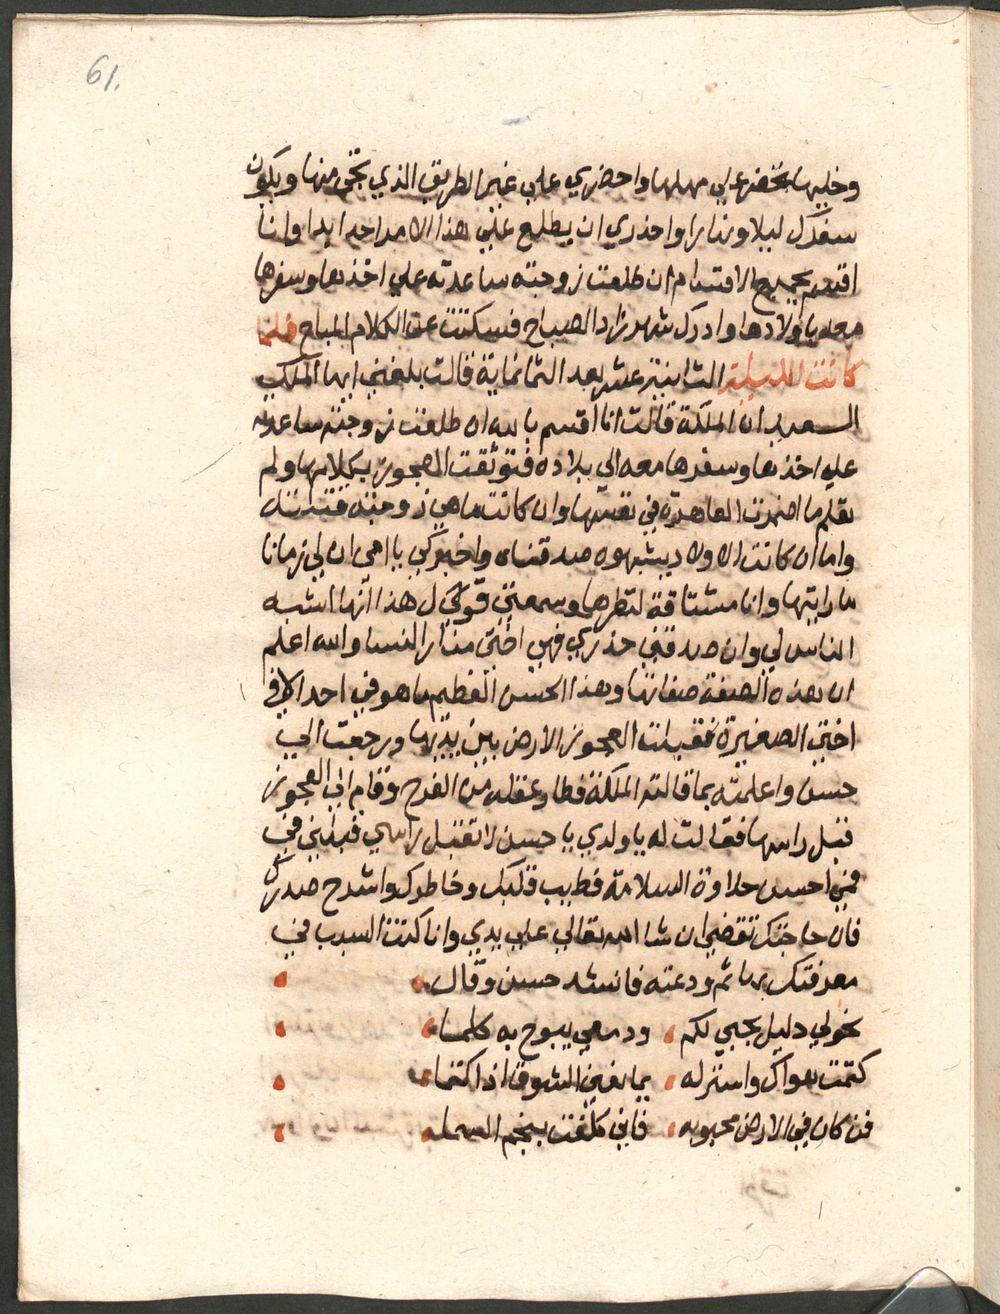 61.
وخليها تحضر علي مهلها واحضري علي غير الطريق الذي تجي منها ويكون
سفرك ليلا ونهارا واحذري ان يطلع علي هذا الامر احد ابدا وانا
اقسم بجميع الاقسام ان طلعت زوجته ساعدته علي اخذها وسفرها
معه باولادها وادرك شهرزاد الصباح فسكتت عن الكلام المباح فلما
كانت الليلة الثانية عشر بعد الثمانماية قالت بلغني ايها الملك
السعيد ان الملكة قالت انا اقسم بالله ان طلعت زوجته ساعدته
علي اخذها وسفرها معه الي بلاده فتوثقت العجوز بكلامها ولم
تعلم ما اضمرت العاهرة في نفسها وان كانت ماهي زوجته قتلته
واما ان كانت الاولاد يشبهوه صدقناه واخبركي يا امي ان لي زمانا
ما رايتها وانا مشتاقة لنظرها وسمعتي قولي لك هذا انها اشبه
الناس لي وان صدقني حذري فهي اختي منار النسا والله اعلم
ان هذه الصفة صفاتها وهذا الحسن العظيم ما هو في احد الا في
اختي الصغيرة فقبلت العجوز الارض بين يديها ورجعت الي
حسن واعلمته بما قالته الملكة فطار عقله من الفرح وقام الي العجوز
قبل راسها فقالت له يا ولدي يا حسن لا تقبل راسي قبلني في
فمي احسن حلاوة السلامة فطيب قلبك وخاطرك واشرح صدرك
فان حاجتك تقضي ان شا الله تعالي علي يدي وانا كنت السبب في
معرفتك بها ثم ودعته فانشد حسن وقال
نحولي دليل بحبي لكم ودمعي يبوح به كلما
كتمت هواك واستر له يمانعني الشوق ان اكتما
فمن كان في الارض محبوبه فاني كلفت بنجم السما